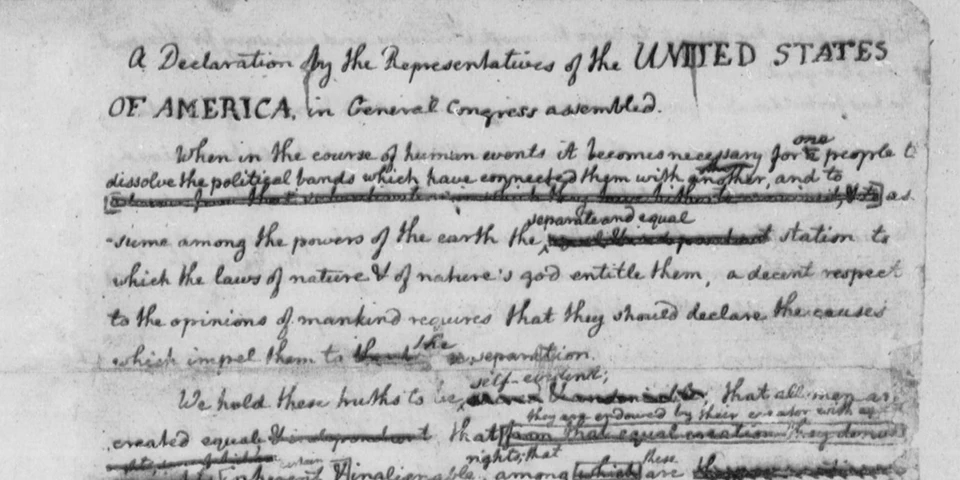 A Declaration by the Representatives of the UNITED STATES
OF AMERICA, in General Congress assembled.
When in the course of human events it becomes necessary for one people t
dissolve the political bands which have connected them with another, and to
advance from that subordination in which they have hitherto remained, & to as
-sume among the powers of the earth the
separate and equal
equal & independant station to
which the laws of nature & of nature's god entitle them, a decent respect
to the opinions of mankind requires that they should declare the causes
which impel them to the separation.
self-evident;
We hold these truths to be sacred & undeniable; that all men are
they are endowed by their creator with
created equal & independant that from that equal creation they
rights; that
these
inherent & inalienable, among which are